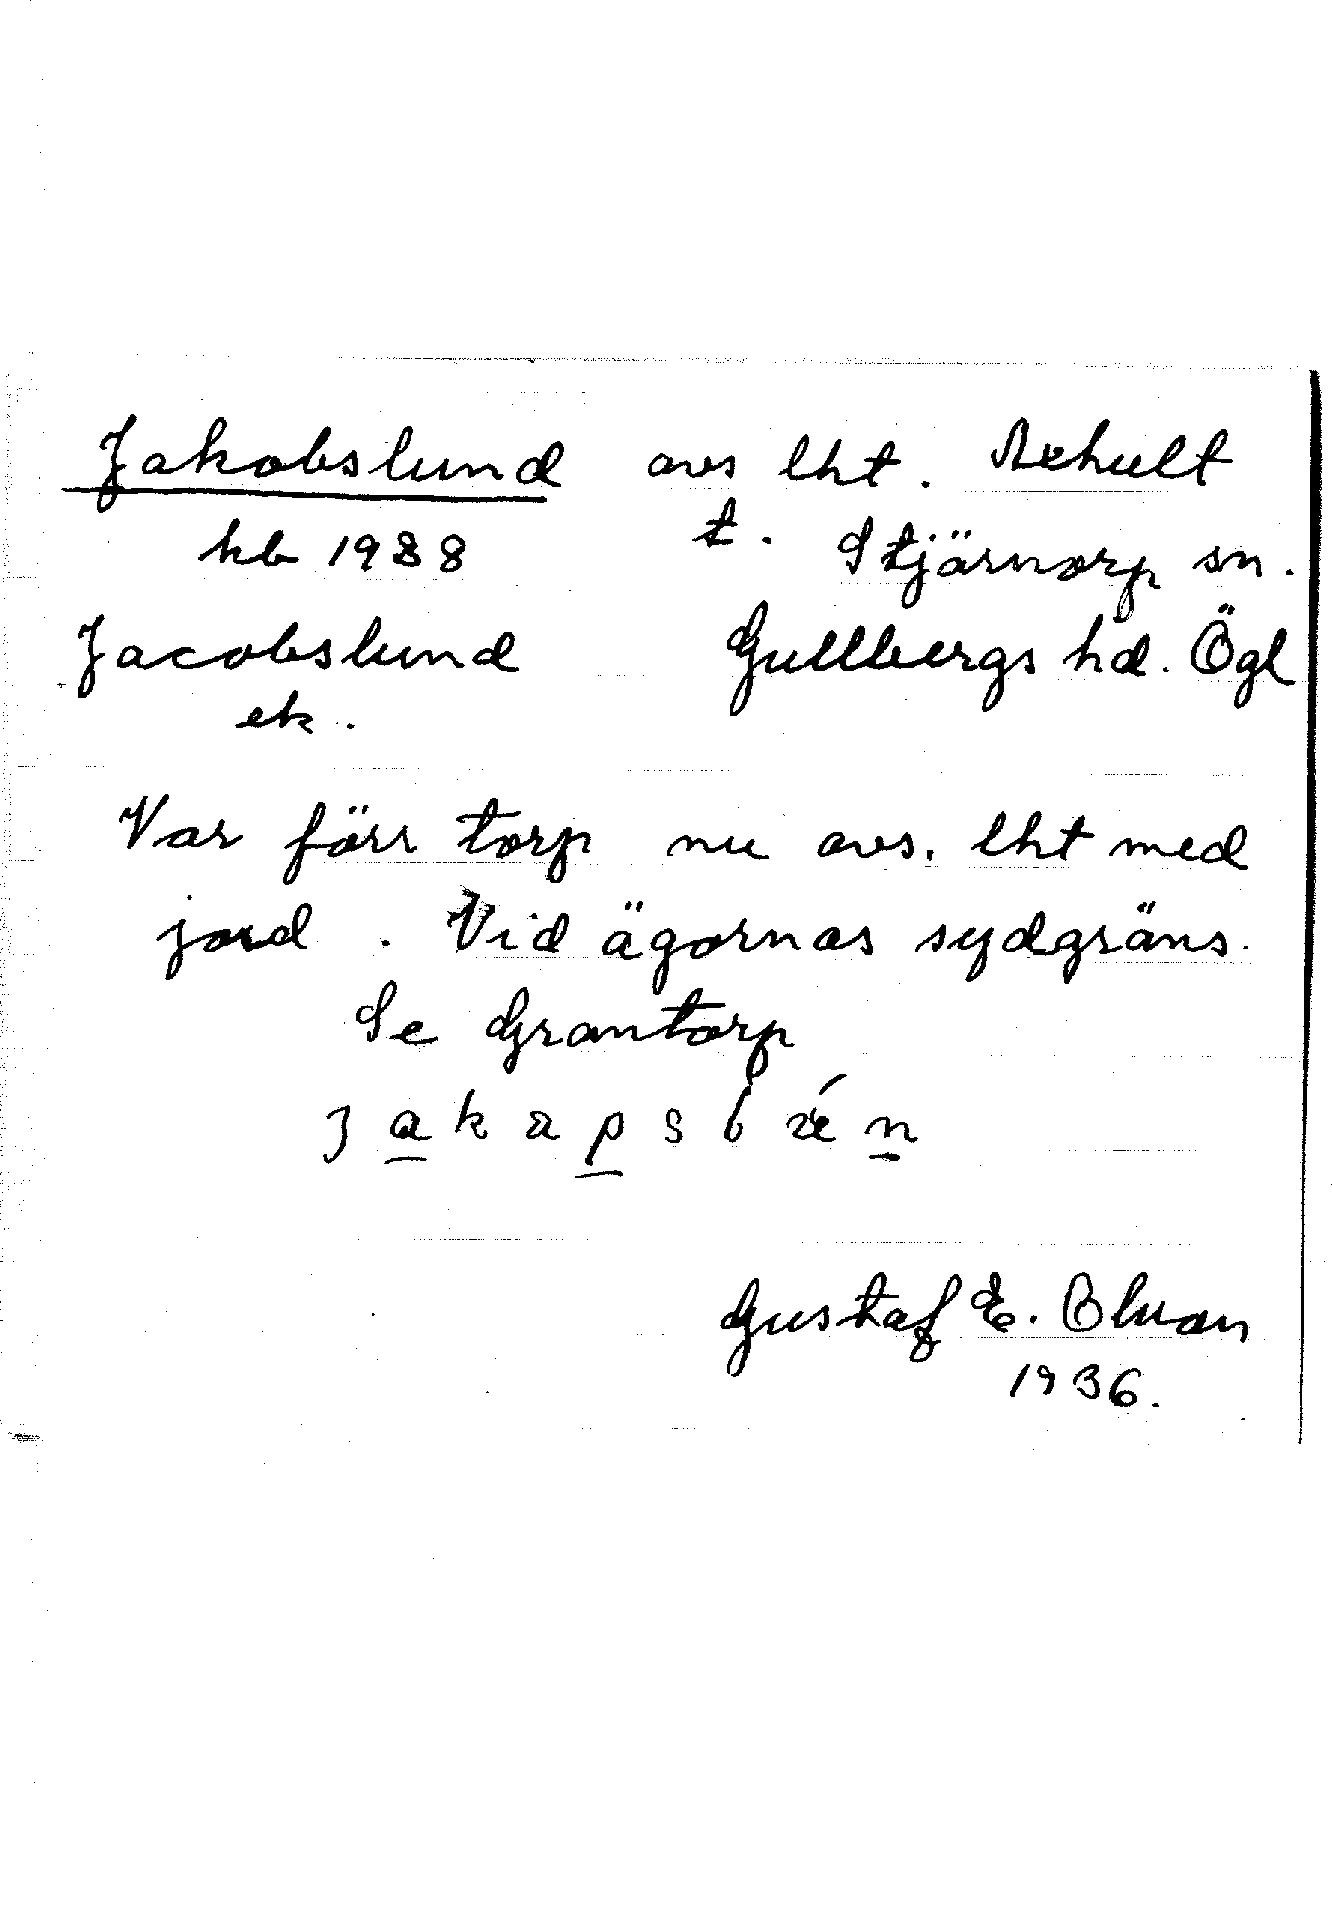 Jakobslund avs lht. Rehult
kb 1988 t. Stjärnorp sn.
Jacobslund Gullbergs hd. Ögl
ek.
Var förr torp nu avs. lht med
jord. Vid ägornas sydgräns.
Se Grantorp
Gustaf E.
1936.